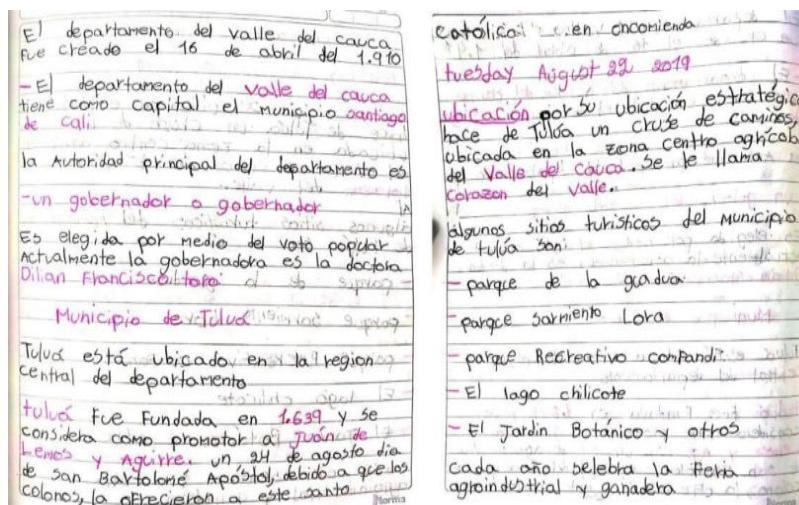 El departamento del valle del cauca
fue creado el 16 de abril del 1.910
- El departamento del Valle del cauca
tiene como capital el municipio santiago
de cali
la Autoridad principal del departamento es
- un gobernador o gobernador
Es elegida por medio del voto popular
Actualmente la gobernadora es la doctora
Dilian Francisca toro
Municipio de Tuluá
Tuluá está ubicado en la region
central del departamento
tuluá Fue Fundada en 1.639 y se
considera como promotor a Juán de
Lemos y Aguirre. un 24 de agosto dia
de san Bartolomé Apóstol, debido a que los
colonos, la ofrecieron a este santo
Norma
católica en encomienda
tuesday August 22 2019
ubicación por su ubicación estratégica
hace de Tulúa un cruse de caminos,
ubicada en la zona centro agrícola
del Valle del Cauca. se le llama
Corazon del Valle.
algunos sitios turisticos del Municipio
de tulúa son:
- parque de la guadua
- parque sarmiento Lora
- parque Recreativo comfandi
- El lago chilicote
- El Jardin Botánico y otros
cada año selebra la feria
agroindustrial y ganadera
Norma